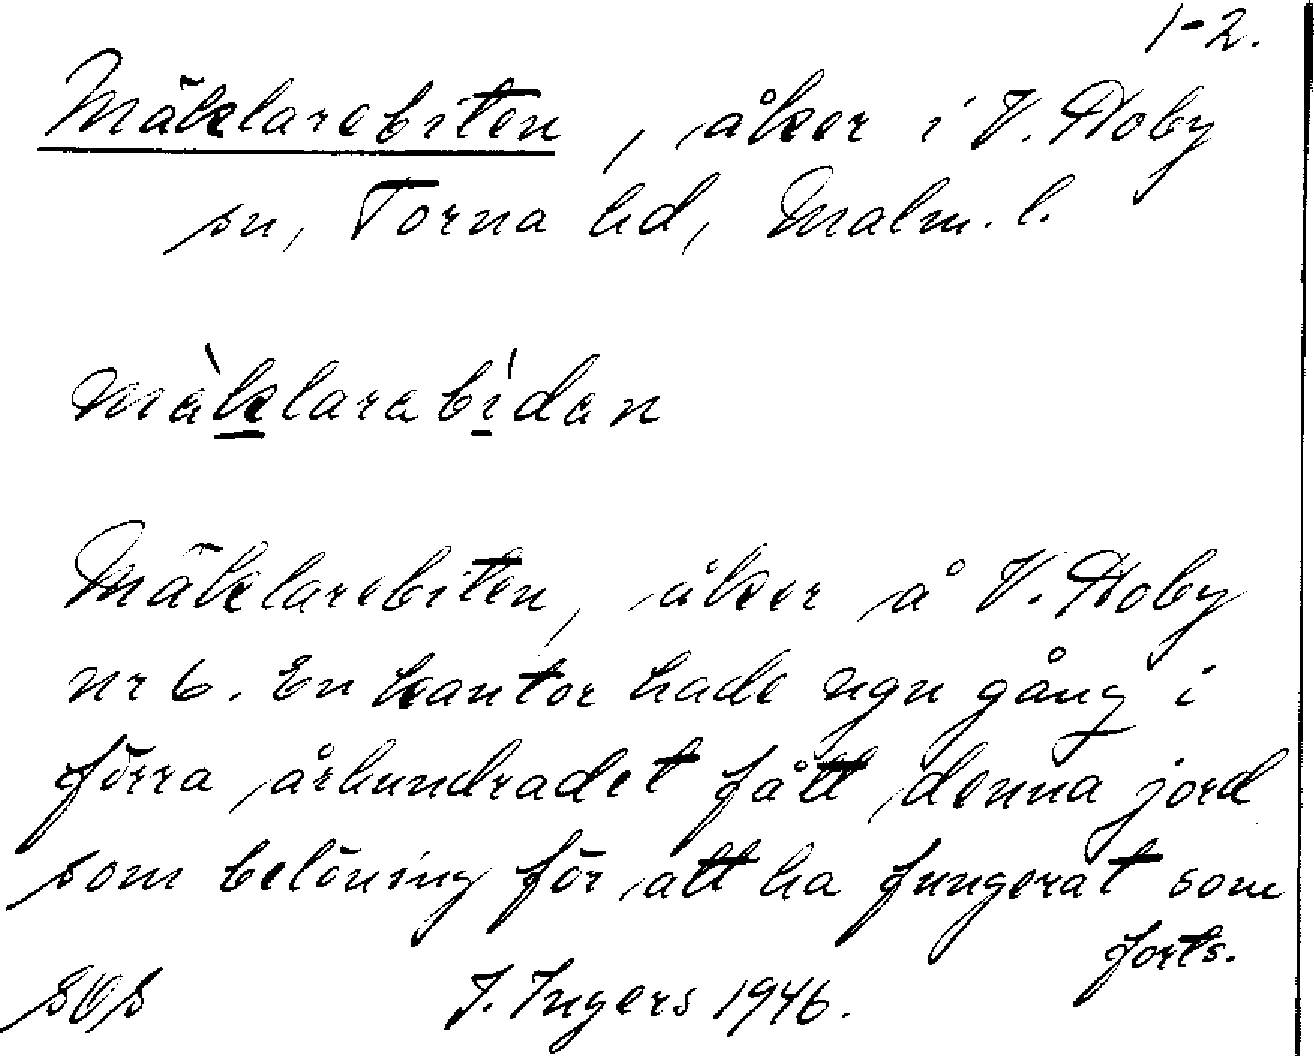 1-2.
Mäklarebiten, åker i V. Hoby
sn, Torna hd, Malm. l.
mä̀klarabídan
Mäklarebiten, åker å V. Hoby
nr 6. En kantor hade ngn gång i
förra århundradet fått denna jord
som belöning för att ha fungerat som
forts.
SOS
I. Ingers 1946.